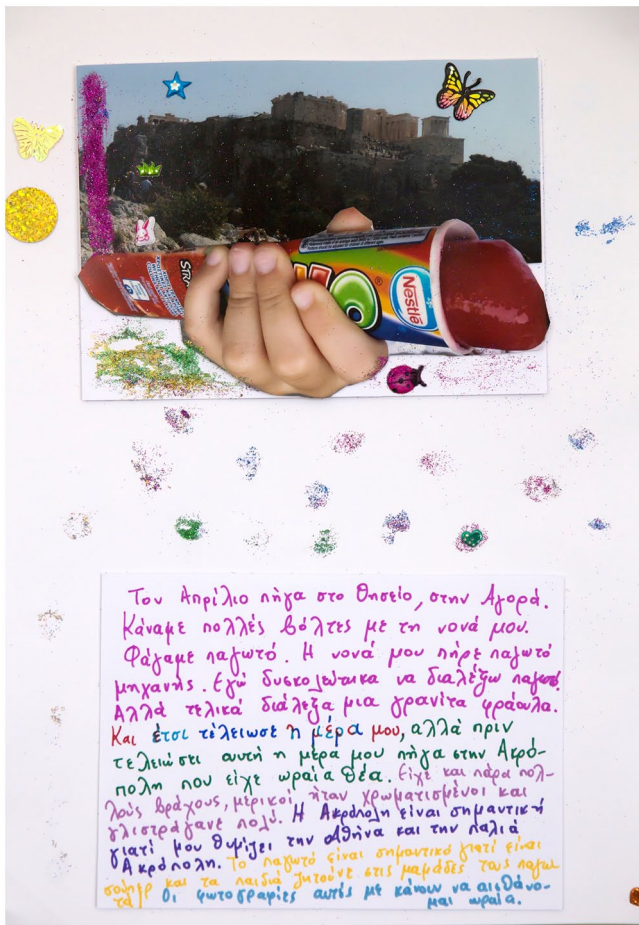 STRA
Nestlé
Τον Απρίλιο πήγα στο Θησείο, στην Αγορά.
Κάναμε πολλές βόλτες με τη νονά μου.
Φάγαμε παγωτό. Η νονά μου πήρε παγωτό
μηχανής. Εγώ δυσκολεύτηκα να διαλέξω παγωτό.
Αλλά τελικά διάλεξα μια γρανίτα φράουλα.
Και έτσι τέλειωσε η μέρα μου, αλλά πριν
τελειώσει αυτή η μέρα μου πήγα στην Ακρό-
πολη που είχε ωραία θέα. Είχε και πάρα πολ-
λούς βράχους, μερικοί ήταν χρωματισμένοι και
γλιστράγανε πολύ. Η Ακρόπολη είναι σημαντική
γιατί μου θυμίζει την Αθήνα και την παλιά
Ακρόπολη. Το παγωτό είναι σημαντικό γιατί είναι
σούπερ και τα παιδιά ζητούνε στις μαμάδες τους παγω-
τά. Οι φωτογραφίες αυτές με κάνουν να αισθάνο-
μαι ωραία.